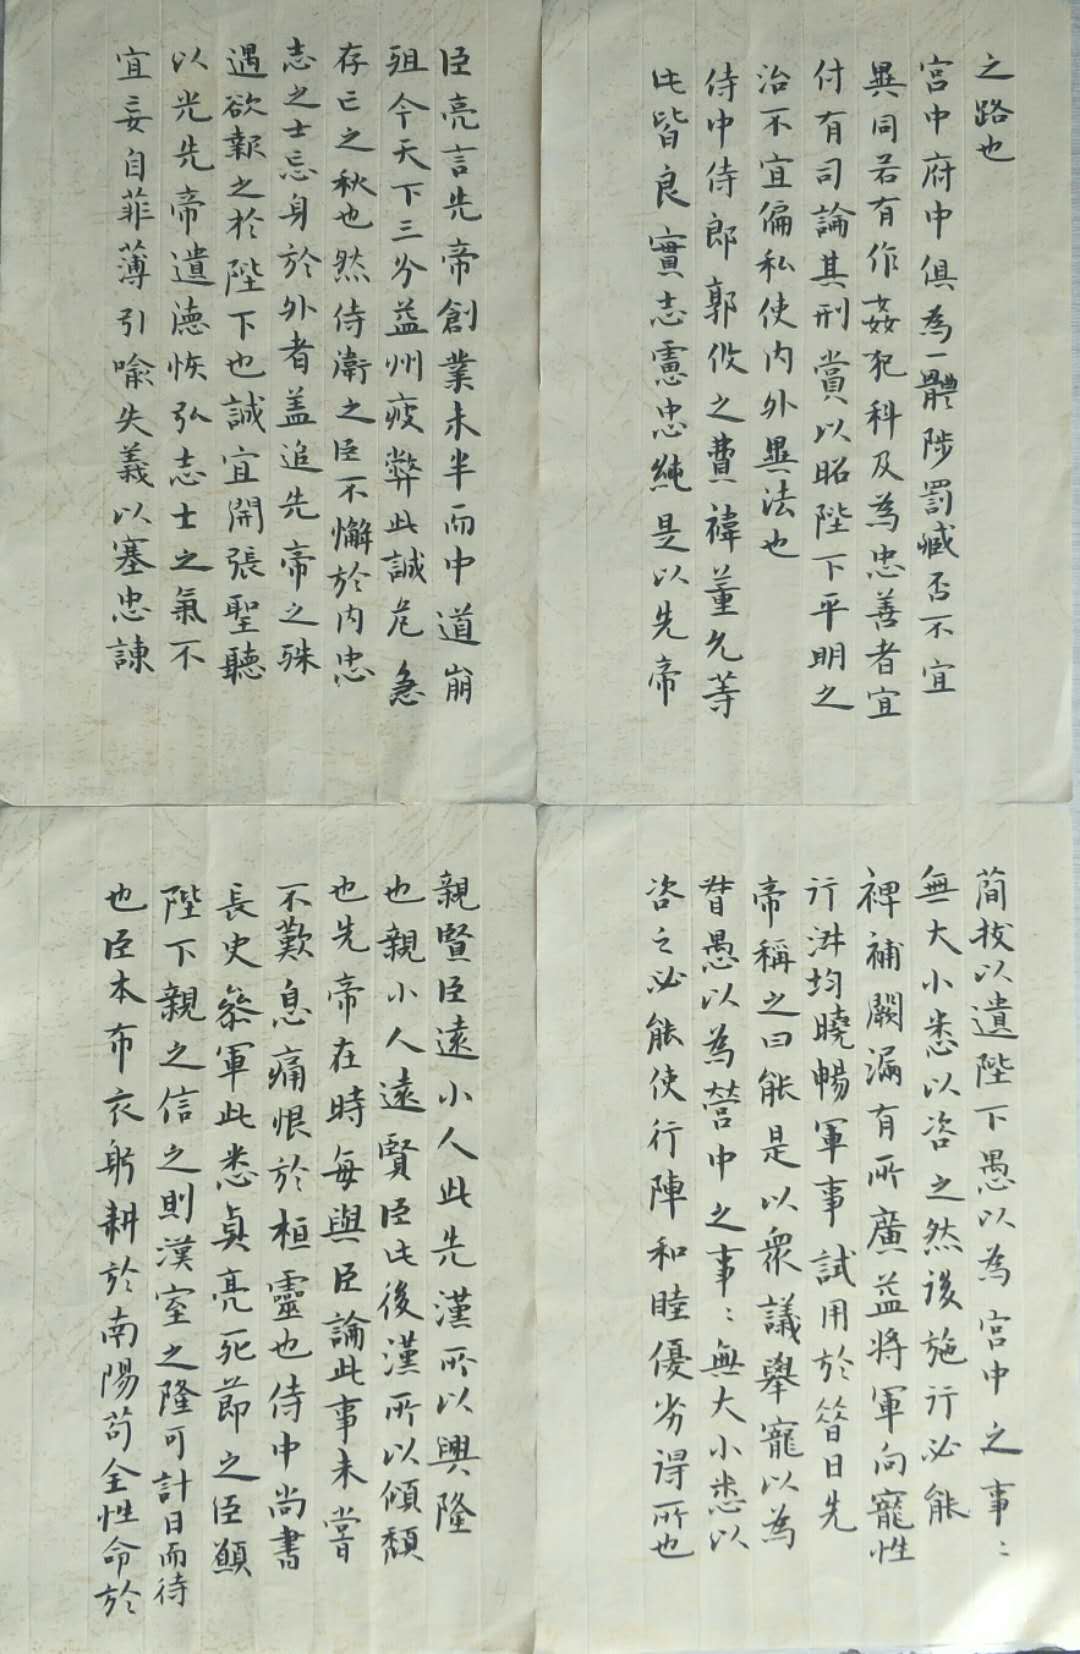 臣亮言先帝創業未半而中道崩
殂今天下三分益州疲弊此誠危急
存亡之秋也然侍衛之臣不懈於內忠
志之士忘身於外者盖追先帝之殊
遇欲報之於陛下也誠宜開張聖聽
以光先帝遺德恢弘志士之氣不
宜妄自菲薄引喻失義以塞忠諫
之路也
宮中府中俱為一體陟罰臧否不宜
異同若有作姦犯科及為忠善者宜
付有司論其刑賞以昭陛下平明之
治不宜偏私使内外異法也
侍中侍郎郭攸之費禕董允等
此皆良實志慮忠純是以先帝
簡拔以遺陛下愚以為宮中之事:
無大小悉以咨之然後施行必能
裨補闕漏有所廣益將軍向寵性
行淑均曉暢軍事試用於昔日先
帝稱之曰能是以衆議舉寵以為
督愚以為營中之事:無大小悉以
咨之必能使行陣和睦優劣得所也
親賢臣遠小人此先漢所以興隆
也親小人遠賢臣此後漢所以傾頹
也先帝在時每與臣論此事未嘗
不歎息痛恨於桓靈也侍中尚書
長史參軍此悉貞亮死節之臣願
陛下親之信之則漢室之隆可計日而待
也臣本布衣躬耕於南陽苟全性命於